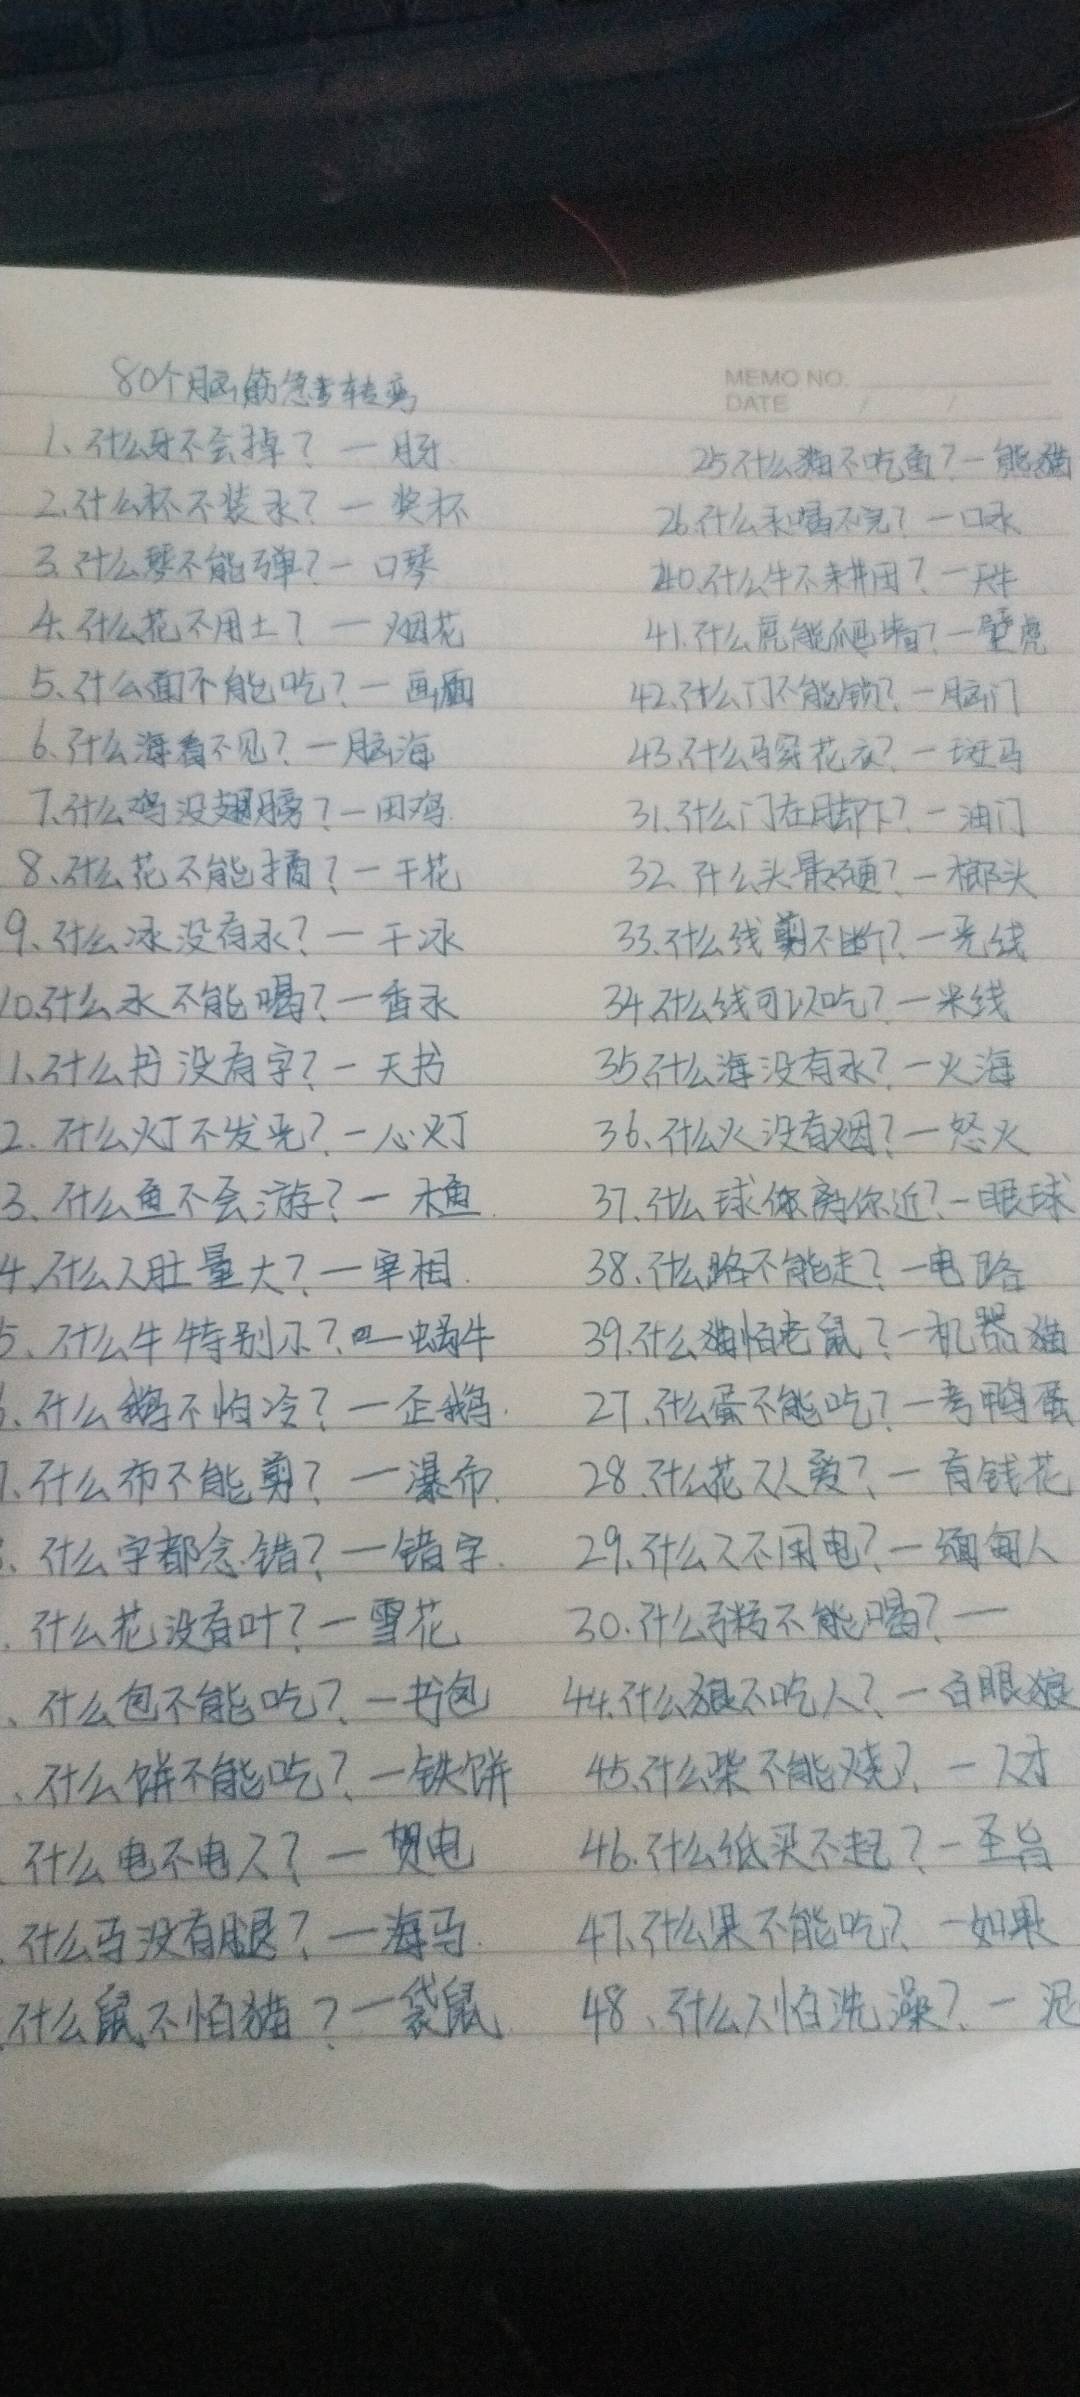 80个脑筋急转弯
MEMO NO.
DATE / /
1、什么牙不会掉？一月牙
2、什么杯不装水？一奖杯
3、什么琴不能弹？一口琴
4、什么花不用土？一烟花
5、什么面不能吃？一画面
6、什么海看不见？一脑海
7、什么鸡没翅膀？一田鸡
8、什么花不能摘？一干花
9、什么冰没有水？一干冰
10、什么水不能喝？一香水
1、什么书没有字？一天书
2、什么灯不发光？一心灯
3、什么鱼不会游？一木鱼
4、什么人肚量大？一宰相
5、什么牛特别小？一蜗牛
、什么鹅不怕冷？一企鹅
、什么布不能剪？一瀑布
、什么字都念错？一错字
、什么花没有叶？一雪花
、什么包不能吃？一书包
、什么饼不能吃？一铁饼
什么电不电人？一贺电
什么马没有腿？一海马
什么鼠不怕猫？一袋鼠
25、什么猫不吃鱼？一熊猫
26、什么水喝不完？一口水
40、什么牛不耕田？一天牛
41、什么虎能爬墙？一壁虎
42、什么门不能锁？一脑门
43、什么马穿花衣？一斑马
31、什么门在脚下？一油门
32、什么头最硬？一榔头
33、什么线剪不断？一光线
34、什么线可以吃？一米线
35、什么海没有水？一火海
36、什么火没有烟？一怒火
37、什么球离你近？一眼球
38、什么路不能走？一电路
39、什么猫怕老鼠？一机器猫
27、什么蛋不能吃？一考鸭蛋
28、什么花人人爱？一有钱花
29、什么人不用电？一缅甸人
30、什么不能喝？一
44、什么狼不吃人？一白眼狼
45、什么柴不能烧？一人才
46、什么纸买不起？一圣旨
47、什么果不能吃？一如果
48、什么人怕洗澡？一泥